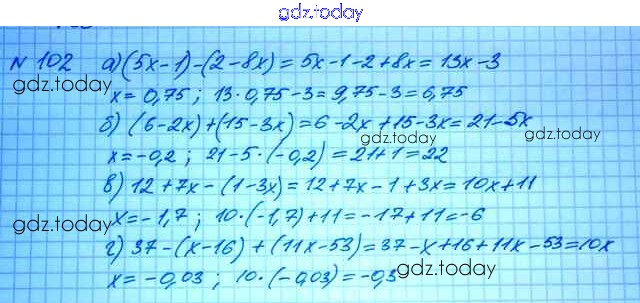 gdz.today
N 102 а) (5x-1)-(2-8x)=5x-1-2+8x=13x-3
gdz.today
x=0,75; 13·0,75-3=9,75-3=6,75
б) (6-2x)+(15-3x)=6-2x+15-3x=21-5x
gdz.today
gdz.today
x=-0,2; 21-5·(-0,2)=21+1=22
в) 12+7x-(1-3x)=12+7x-1+3x=10x+11
gdz.today
x=-1,7; 10·(-1,7)+11=-17+11=-6
г) 37-(x-16)+(11x-53)=37-x+16+11x-53=10x
gdz.today
x=-0,03; 10·(-0,03)=-0,3
gdz.today